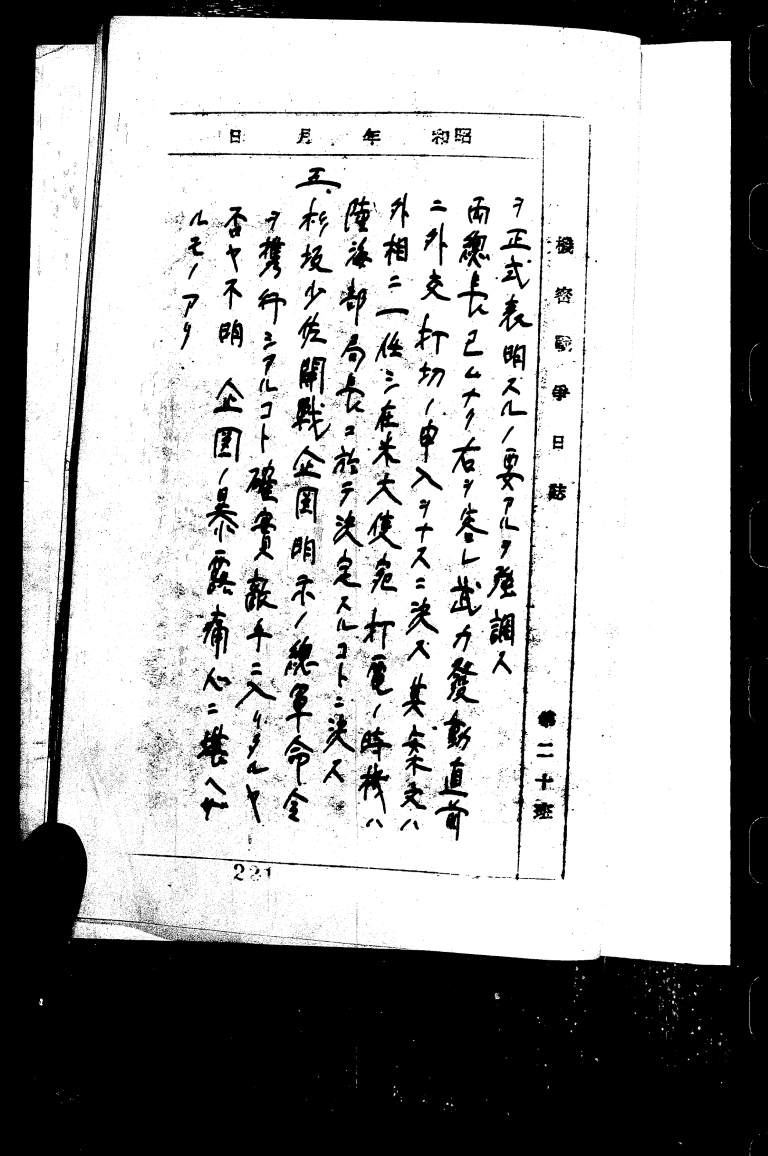 機密戰爭日誌
第二十班
昭和 年 月 日
ヲ正式表明スルノ要アルヲ強調ス
両總長已ムナク右ヲ容レ武力發動直前
ニ外交打切ノ申入ヲナスニ決ス其案文ハ
外相ニ一任シ在米大使宛打電ノ時機ハ
陸海部局長ニ於テ決定スルコトニ決ス
五、杉坂少佐開戰企圖明示ノ總軍命令
ヲ携行シアルコト確實敵手ニ入リタルヤ
否ヤ不明 企圖ノ暴露痛心ニ堪ヘザ
ルモノアリ
221